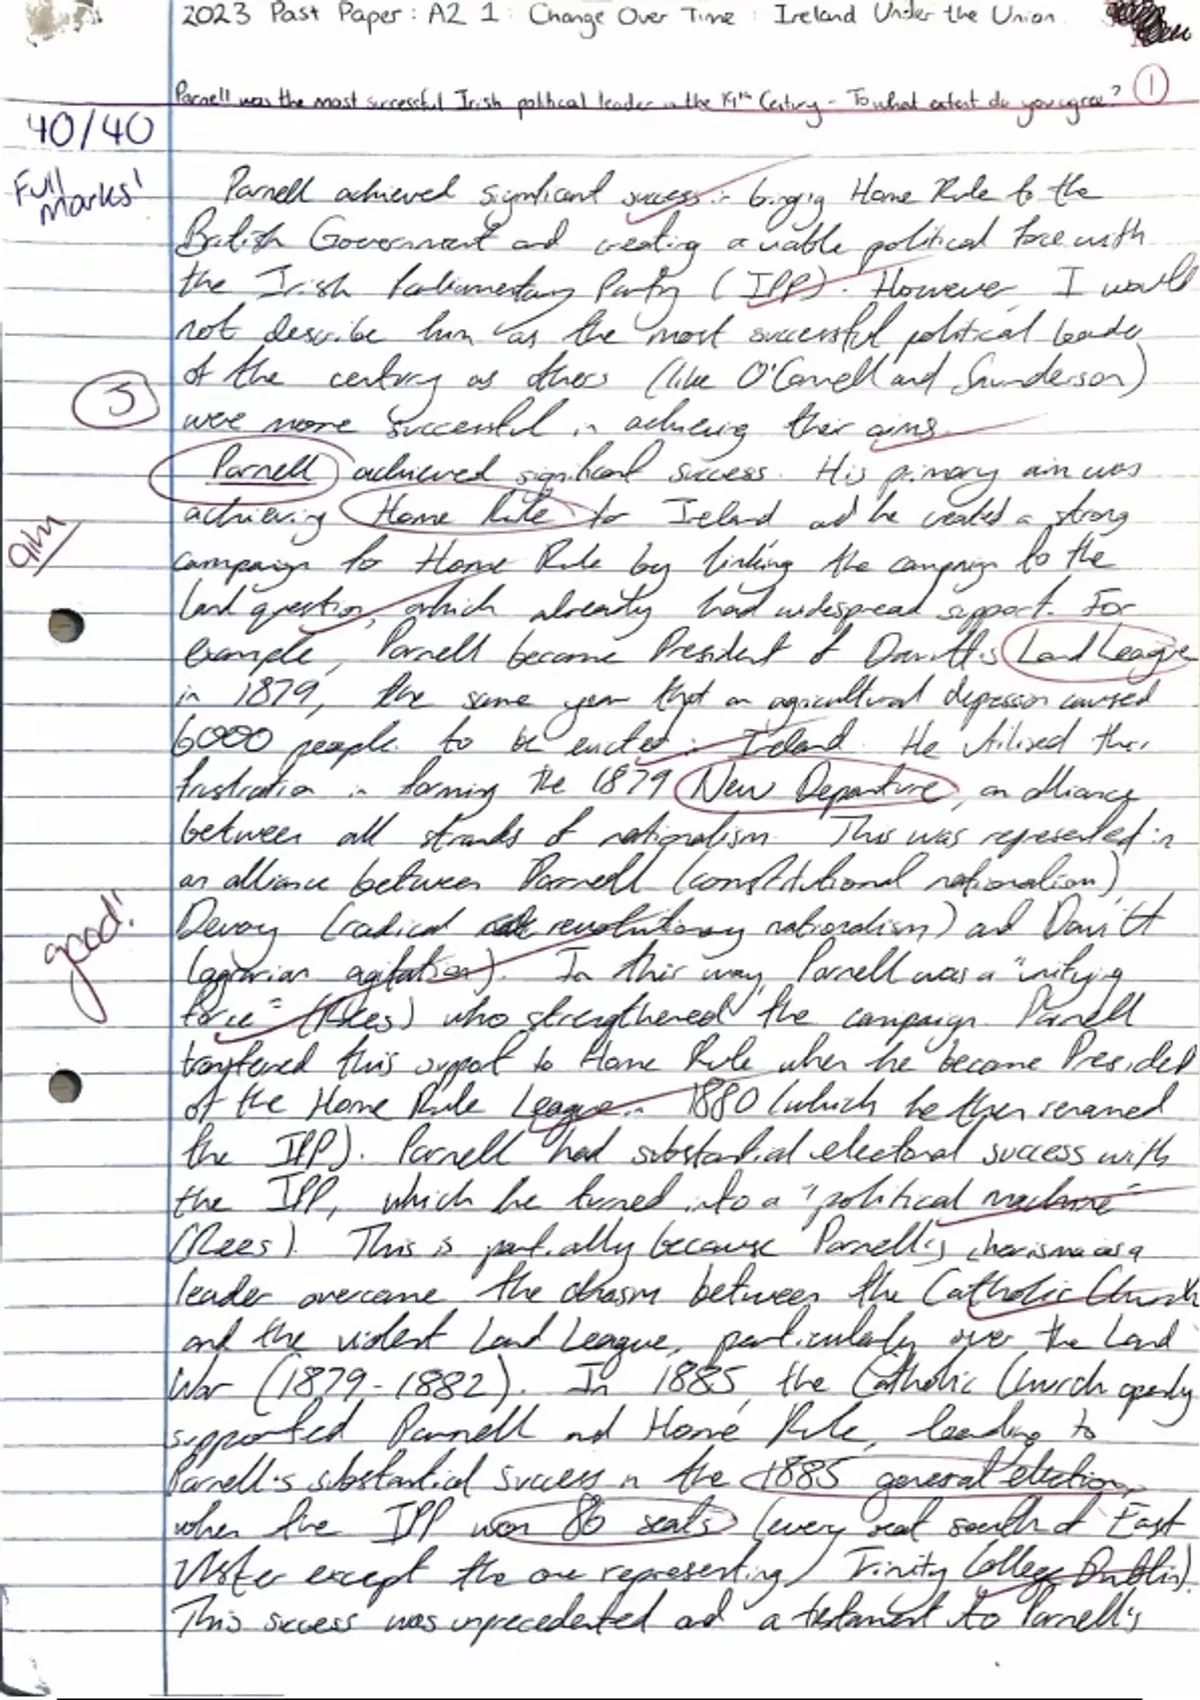 2023 Past Paper: A2 1: Change Over Time: Ireland Under the Union
Parnell was the most successful Irish political leader in the 19th Century - To what extent do you agree? 1
40/40
Full Marks!
Parnell achieved significant success in bringing Home Rule to the
British Government and creating a viable political force with
the Irish Parliamentary Party (IPP). However, I would
not describe him as the most successful political leader
of the century as others (like O'Connell and Saunderson)
5
were more successful in achieving their aims.
Parnell achieved significant success. His primary aim was
achieving Home Rule for Ireland and he created a strong
aim
campaign for Home Rule by linking the campaign to the
land question, which already had widespread support. For
example, Parnell became President of Davitt's Land League
in 1879, the same year that an agricultural depression caused
6000 people to be evicted in Ireland. He utilised this
frustration in forming the 1879 New Departure, an alliance
between all strands of nationalism. This was represented in
an alliance between Parnell (constitutional nationalism)
Devoy (radical revolutionary nationalism) and Davitt
good!
(agrarian agitation). In this way, Parnell was a "unifying
force" (Rees) who strengthened the campaign. Parnell
transferred this support to Home Rule when he became President
of the Home Rule League in 1880 (which he then renamed
the IPP). Parnell had substantial electoral success with
the IPP, which he turned into a "political machine"
(Rees). This is partially because Parnell's charisma as a
leader overcame the chasm between the Catholic Church
and the violent Land League, particularly over the Land
War (1879-1882). In 1885, the Catholic Church openly
supported Parnell and Home Rule, leading to
Parnell's substantial success in the 1885 general election,
when the IPP won 86 seats (every seat south of East
Ulster except the one representing Trinity College Dublin).
This success was unprecedented and a testament to Parnell's